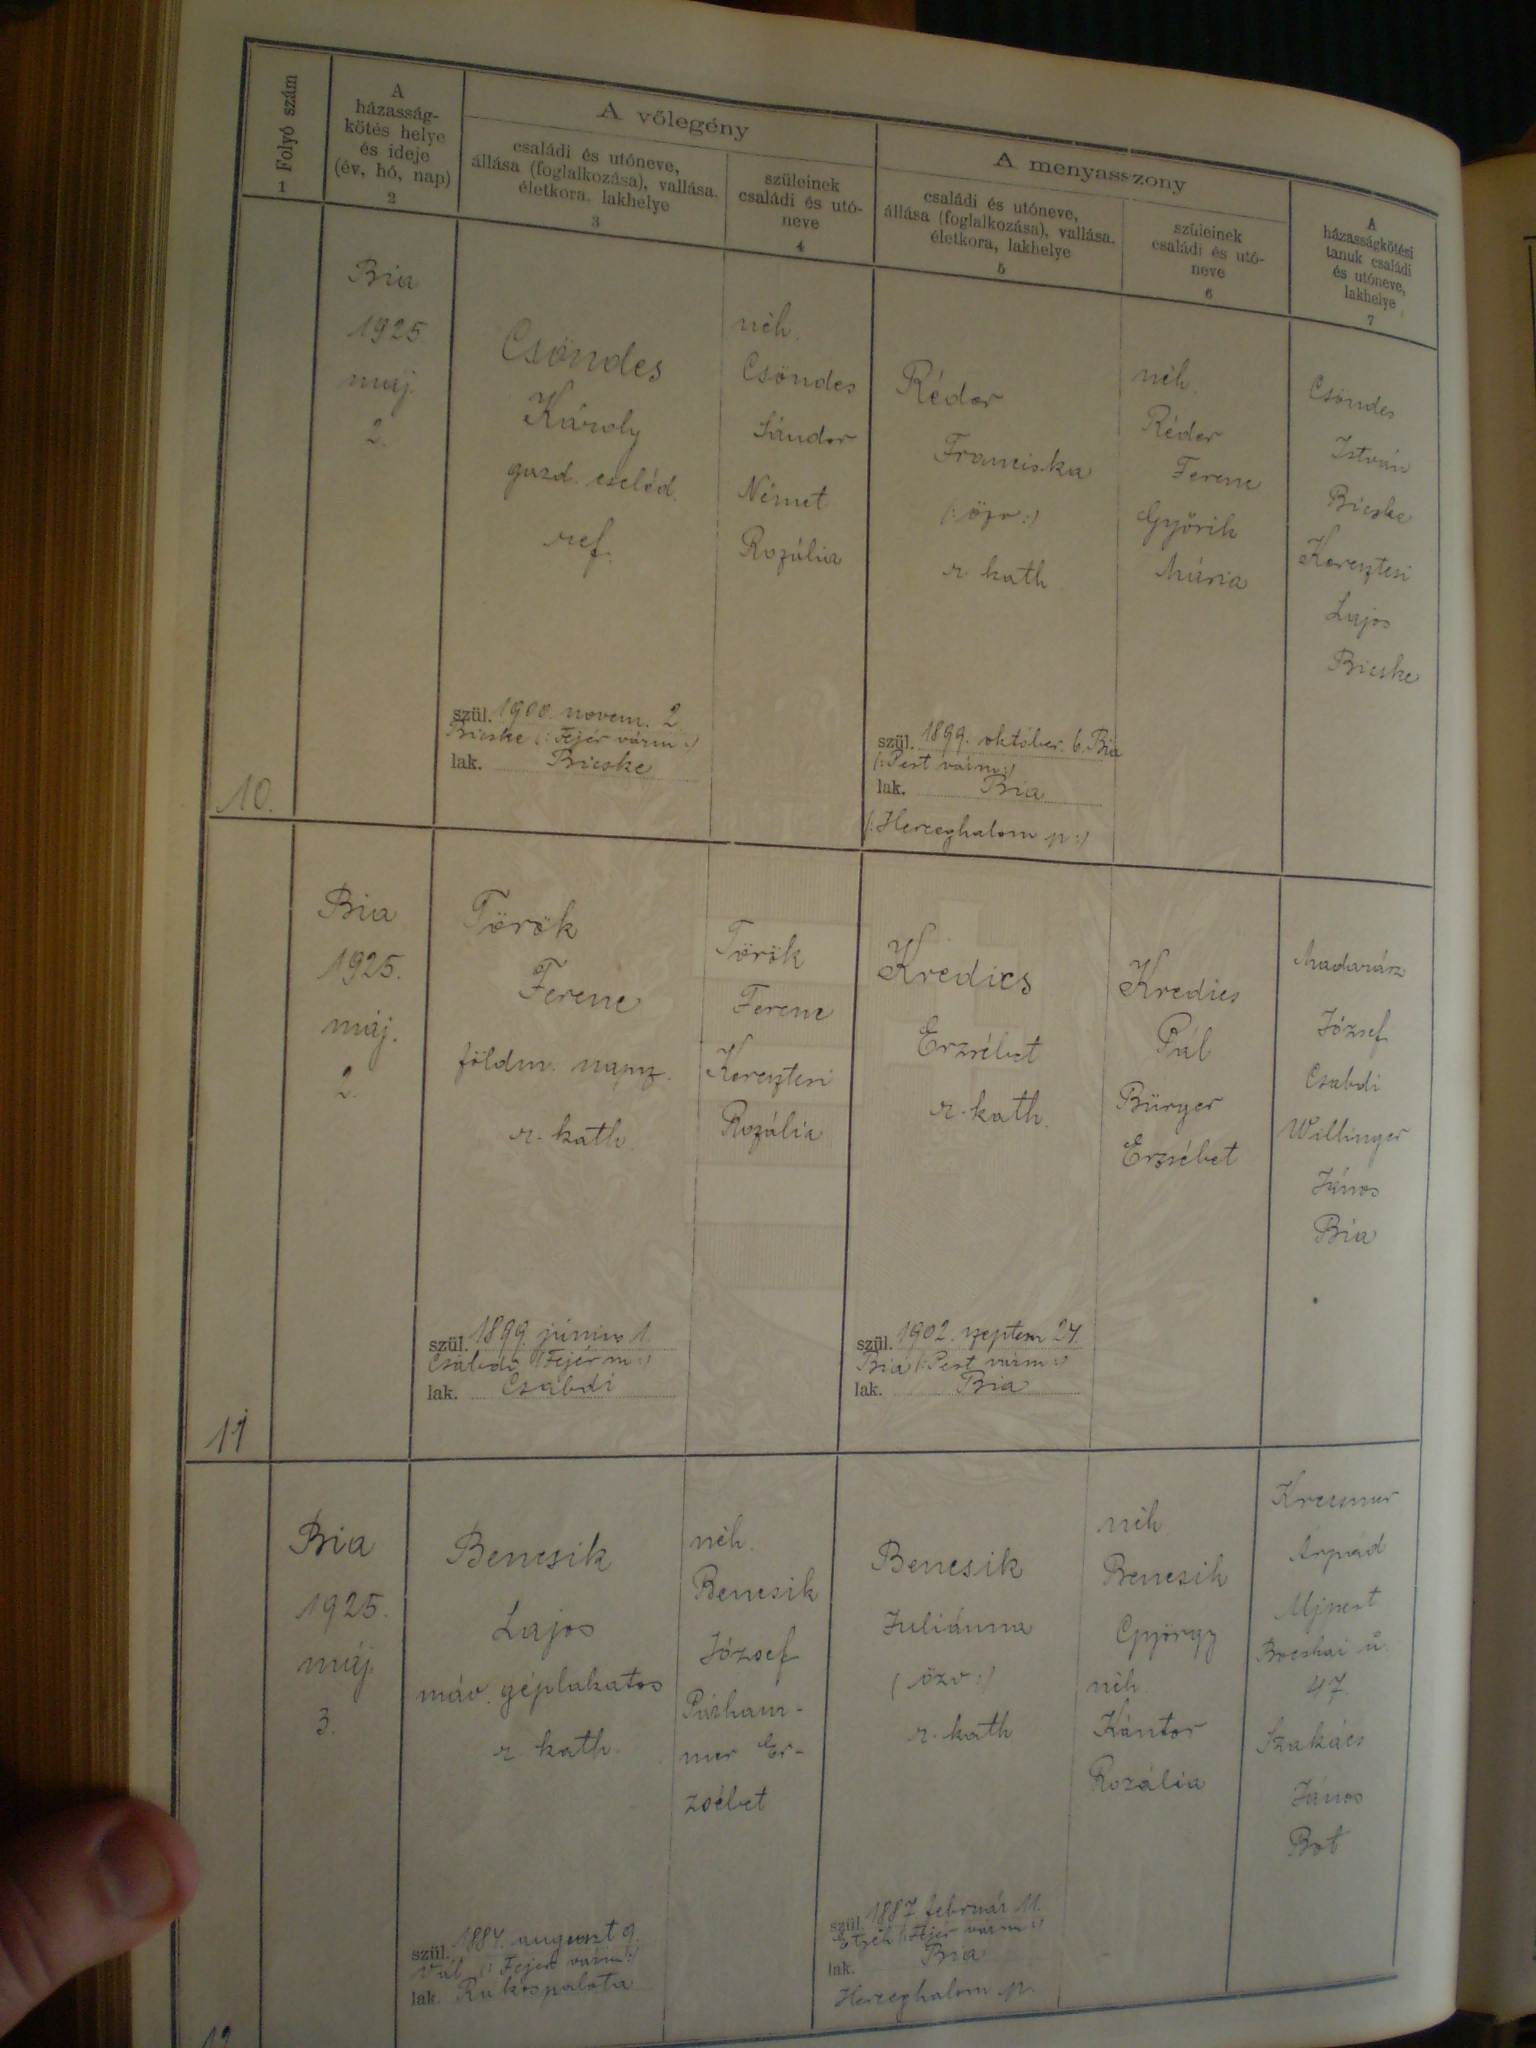 Folyó szám
1
A
házasság-
kötés helye
és ideje
(év, hó, nap)
2
A vőlegény
családi és utóneve,
állása (foglalkozása), vallása,
életkora, lakhelye
3
szüleinek
családi és utó-
neve
4
A menyasszony
családi és utóneve,
állása (foglalkozása), vallása,
életkora, lakhelye
5
szüleinek
családi és utó-
neve
6
A
házasságkötési
tanuk családi
és utóneve,
lakhelye
7
10.
Bia
1925
máj.
2.
Csöndes
Károly
gazd. cseléd.
ref.
szül. 1900. novem. 2
Bicske (: Fejér várm :)
lak. Bicske
néh.
Csöndes
Sándor
Német
Rozália
Réder
Franciska
(: özv :)
r. kath
szül. 1899. október. 6. Bia
(: Pest várm :)
lak. Bia
(: Herceghalom p :)
néh.
Réder
Ferenc
Győrik
Mária
Csöndes
István
Bicske
Keresztesi
Lajos
Bicske
11
Bia
1925.
máj.
2.
Török
Ferenc
földm. napsz.
r. kath.
szül. 1899. június 1.
Csabdi (: Fejér m :)
lak. Csabdi
Török
Ferenc
Keresztesi
Rozália
Kredics
Erzsébet
r. kath.
szül. 1902. szeptem 24.
Bia (: Pest várm :)
lak. Bia
Kredics
Pál
Bürger
Erzsébet
Madarász
József
Csabdi
Willinger
János
Bia
12
Bia
1925.
máj
3.
Bencsik
Lajos
máv. géplakatos
r. kath.
szül. 1884. auguszt 9.
Vál (: Fejér várm :)
lak. Rákospalota
néh.
Bencsik
József
Párham-
mer Er-
zsébet
Bencsik
Juliánna
(: özv :)
r. kath
szül. 1887 február 11.
Etyek (: Fejér várm :)
lak. Bia
Herceghalom p.
néh.
Bencsik
György
néh.
Kántor
Rozália
Krecsmer
Árpád
Ujpest
Bocskai u.
47.
Szakács
János
Bot